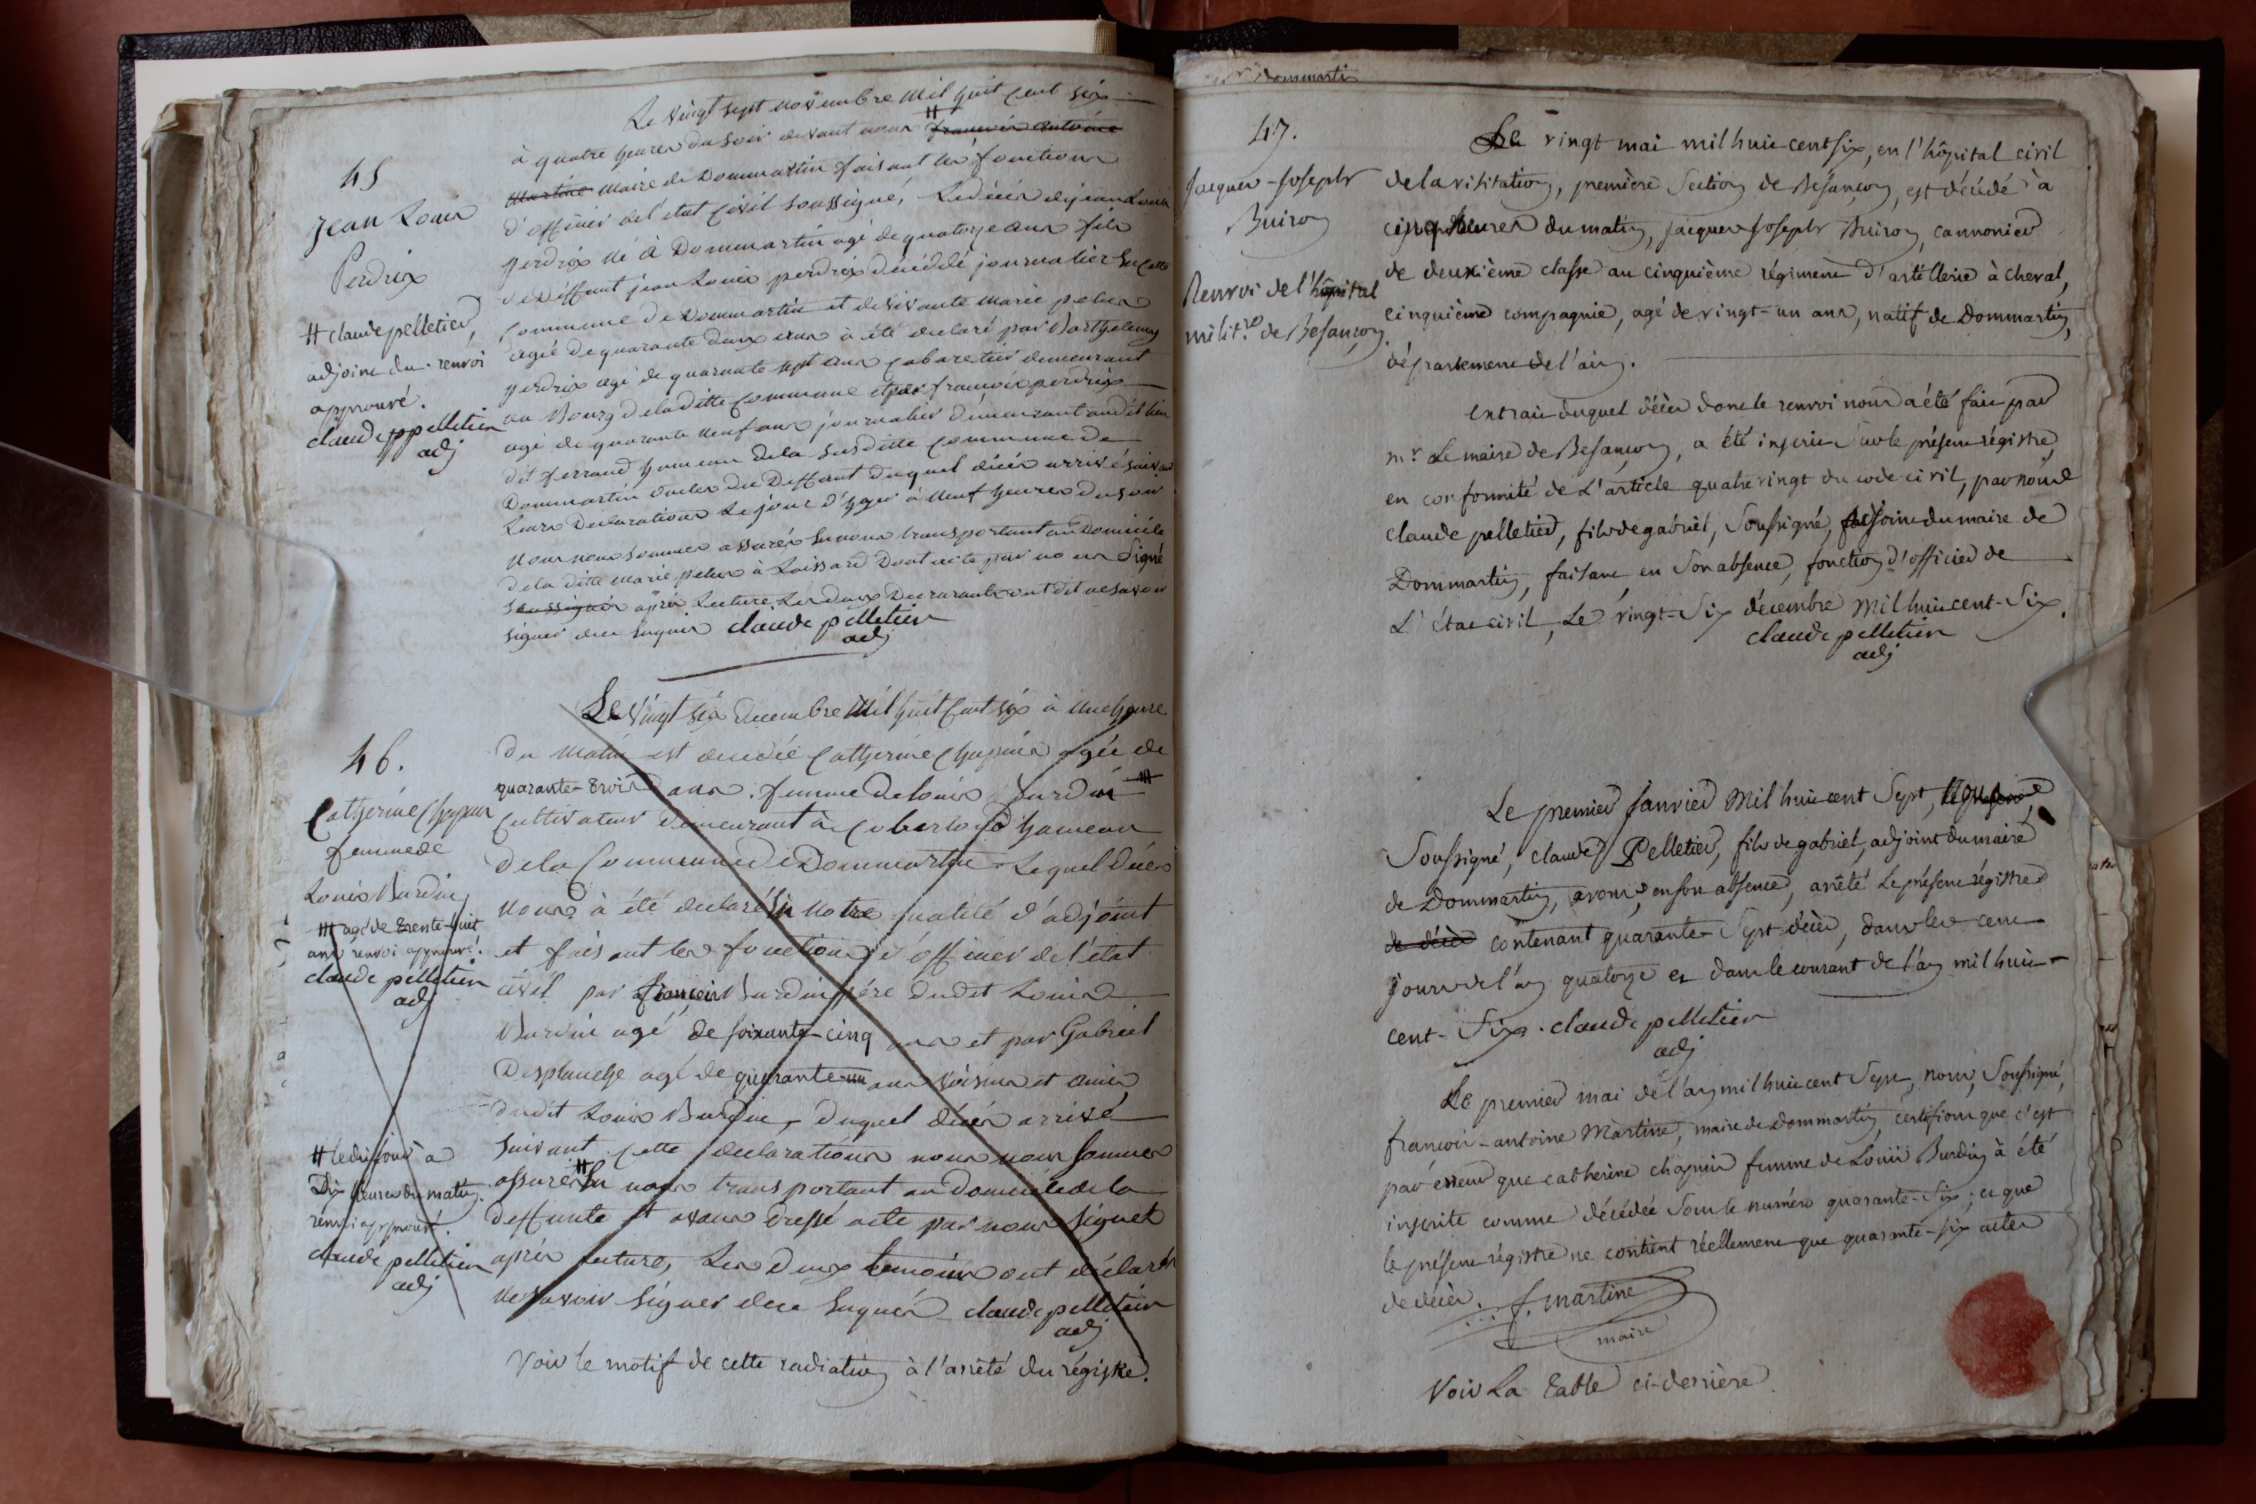 Le vingt sept novembre mil huit cent six
à quatre heures du soir devant nous # françois antoine
martine maire de Dommartin faisant les fonctions
d'officier de l'etat civil soussigné, Le décès de jean Louis
perdrix né à Dommartin agé de quatorze ans fils
de deffunt jean Louis perdrix décédé journalier en cette
commune de Dommartin et de vivante marie
agée de quarante deux ans à été declaré par Barthelemy
perdrix agé de quarante sept ans cabaretier demeurant
au Bourg de la ditte commune et par françois perdrix
agé de quarante neuf ans journalier demeurant au dit lieu
dit ferrand hameau de la susditte commune de
Dommartin oncles du Deffunt duquel décès arrivé suivant
Leurs Declarations Le jour d'hyer à neuf heures du soir
nous nous sommes assurés en nous transportant au Domicile
de la ditte marie à Loissard Dont acte par nous Signé
soussignés après Lecture, Les deux Declarants ont dit ne savoir
signer de ce enquis claude pelletier
adj
45
Jean Louis
Perdrix
# claude pelletier,
adjoint du. renvoi
approuvé.
claude pelletier
adj
Le vingt six decembre mil huit cent six à une heure
du matin est decedée Catherine Chapuis agée de
quarante-trois ans. femme de Louis Burdin #
Cultivateur demeurant à hameau
de la Commune de Dommartin Lequel décès
nous à été declaré en notre qualité d'adjoint
et faisant les fonctions d'officier de l'état
civil par françois Burdin père dudit Louis
Burdin agé de soixante-cinq ans et par Gabriel
Desplanche agé de quarante-un ans voisin et amis
dudit Louis Burdin, duquel décès arrivé
suivant cette declaration nous nous sommes
assurés # En nous transportant au Domicile de la
deffunte Et avons dressé acte par nous signet
après Lecture, Les deux temoins ont déclarés
ne savoir signer de ce enquis claude pelletier
adj
Voir le motif de cette radiation à l'arrêté du régistre.
46.
Catherine Chapuis
femme de
Louis Burdin
# agé de trente-huit
ans renvoi approuvé!
claude pelletier
adj
# ledit jour à
Dix heures du matin.
renvoi approuvé.
claude pelletier
adj
47.
Jacques-Joseph
Buiron
Renvoi de l'hôpital
milit.re de Besançon
Le vingt mai mil huit cent six, en l'hôpital civil
de la visitation, première Section de Besançon, est décédé à
cinq heures du matin, jacques joseph Buiron, cannonier
de deuxième classe au cinquième régiment d'artillerie à cheval,
cinquième compagnie, agé de vingt-un ans, natif de Dommartin,
département de l'ain.
Extrait duquel décès dont le renvoi nous a été fait par
mr. Le maire de Besançon, a été inscrit sur le présent régistre,
en conformité de L'article quatre vingt du code civil, par nous
claude pelletier, fils de gabriel, soussigné, adjoint du maire de
Dommartin, faisant, en son absence, fonction d'officier de
L'état civil, Le vingt-six décembre mil huit cent-six.
claude pelletier
adj
Le premier janvier mil huit cent sept,
soussigné, claude Pelletier, fils de gabriel, adjoint du maire
de Dommartin, avons, en son absence, arrêté Le présent régistre
de décès contenant quarante-sept décès, dans les cent
jours de l'an quatorze et dans le courant de l'an mil huit
cent-six. claude pelletier
adj
Le premier mai de l'an mil huit cent sept, nous, soussigné,
françois-antoine Martine, maire de Dommartin, certifions que c'est
par erreur que catherine chapuis femme de Louis Burdin à été
inscrite comme décédée sous le numéro quarante-six; et que
le présent régistre ne contient réellement que quarante-six actes
de décès. f. martine
maire
Voir La table ci-derrière.